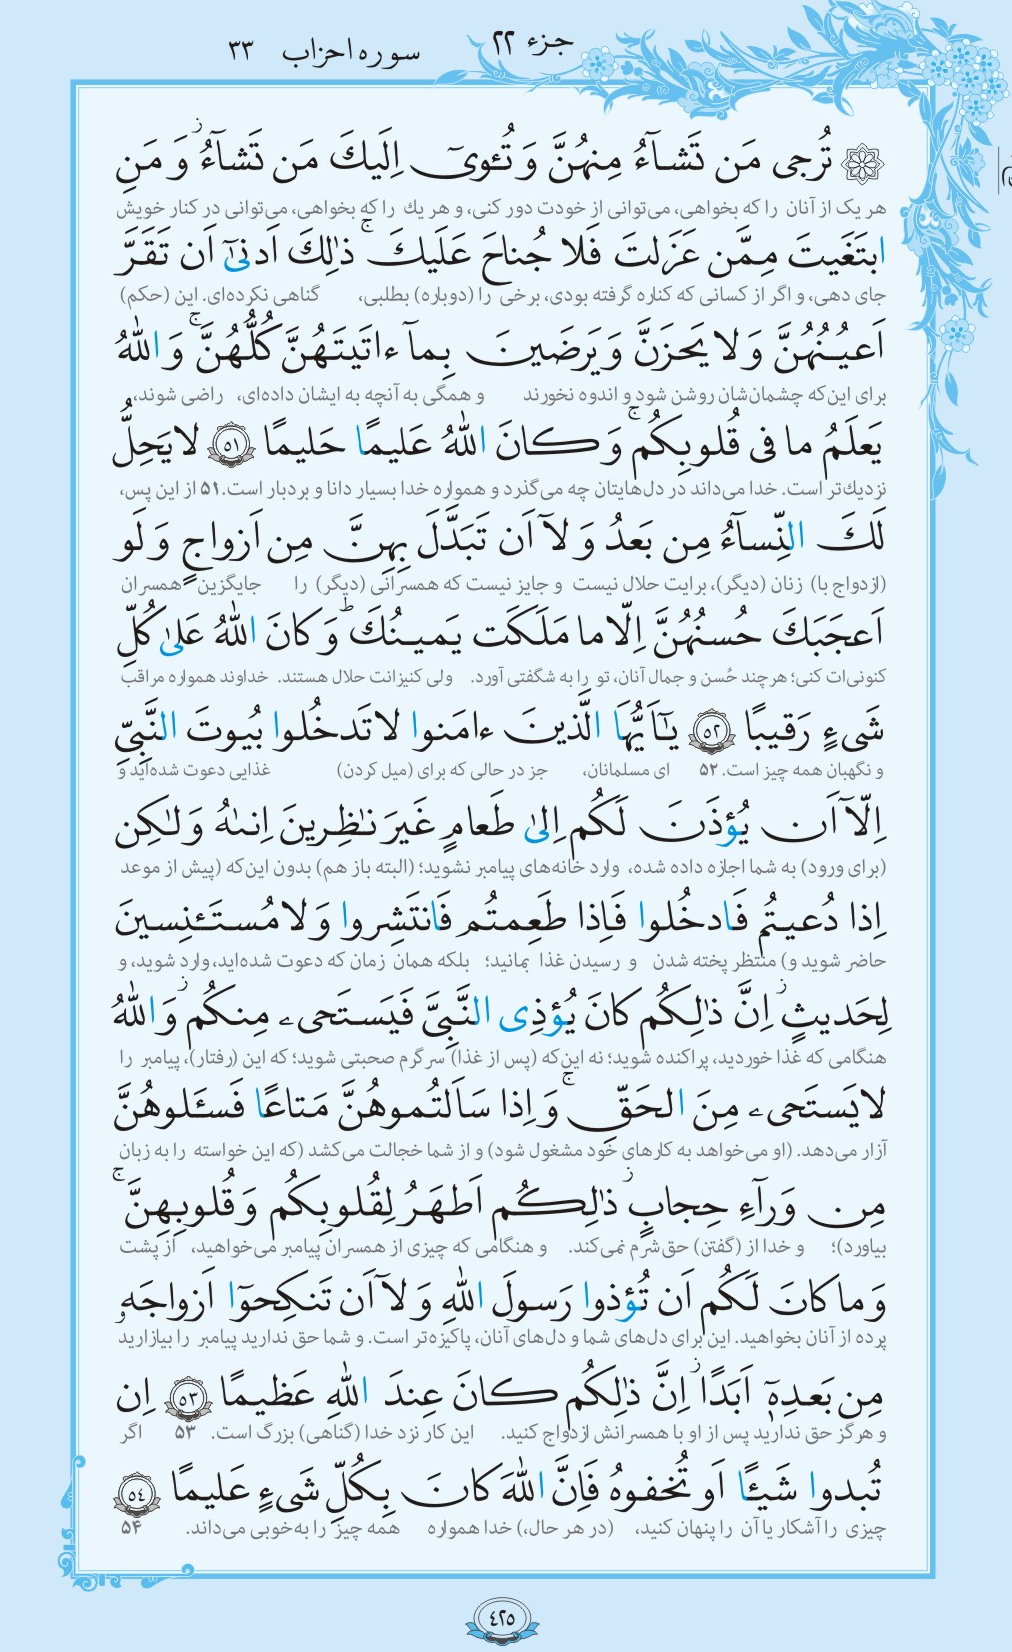 جزء ۲۲
سوره احزاب ۳۳
تُرجی مَن تَشآءُ مِنهُنَّ وَ تُـٔویٓ اِلَیكَ مَن تَشآءُ ۖ وَ مَنِ
هر یک از آنان را که بخواهی، می‌توانی از خودت دور کنی، و هر یك را که بخواهی، می‌توانی در کنار خویش
ابتَغَیتَ مِمَّن عَزَلتَ فَلا جُناحَ عَلَیكَ ۚ ذٰلِكَ اَدنیٰٓ اَن تَقَرَّ
جای دهی، و اگر از کسانی که کناره گرفته بودی، برخی را (دوباره) بطلبی، گناهی نکرده‌ای. این (حکم)
اَعیُـنُهُنَّ وَ لا یَحزَنَّ وَ یَرضَینَ بِمآ ءاتَیتَهُنَّ كُلُّهُنَّ ۚ وَ اللّٰهُ
برای این‌که چشمان‌شان روشن شود و اندوه نخورند و همگی به آنچه به ایشان داده‌ای، راضی شوند،
یَعلَمُ ما فی قُلوبِكُم ۚ وَ كانَ اللّٰهُ عَلیمًا حَلیمًا ٥١ لا یَحِلُّ
نزدیك‌تر است. خدا می‌داند در دل‌هایتان چه می‌گذرد و همواره خدا بسیار دانا و بردبار است. ۵۱ از این پس،
لَكَ النِّسآءُ مِن بَعدُ وَ لآ اَن تَبَدَّلَ بِهِنَّ مِن اَزواجٍ وَ لَو
(ازدواج با) زنان (دیگر)، برایت حلال نیست و جایز نیست که همسرانی (دیگر) را جایگزین همسران
اَعجَبَكَ حُسنُهُنَّ اِلّا ما مَلَكَت یَمینُكَ ۗ وَ كانَ اللّٰهُ عَلیٰ كُلِّ
کنونی‌ات کنی؛ هر چند حُسن و جمال آنان، تو را به شگفتی آورد. ولی کنیزانت حلال هستند. خداوند همواره مراقب
شَیءٍ رَقیبًا ٥٢ یٰٓاَیُّهَا الَّذینَ ءامَنوا لا تَدخُلوا بُیوتَ النَّبِیِّ
و نگهبان همه چیز است. ۵۲ ای مسلمانان، جز در حالی که برای (میل کردن) غذایی دعوت شده‌اید و
اِلّآ اَن یُؤذَنَ لَكُم اِلیٰ طَعامٍ غَیرَ نٰظِرینَ اِنىٰهُ وَ لٰكِن
(برای ورود) به شما اجازه داده شده، وارد خانه‌های پیامبر نشوید؛ (البته باز هم) بدون این‌که (پیش از موعد
اِذا دُعیتُم فَادخُلوا فَاِذا طَعِمتُم فَانتَشِروا وَ لا مُستَـٔنِسینَ
حاضر شوید و) منتظر پخته شدن و رسیدن غذا بمانید؛ بلکه همان زمان که دعوت شده‌اید، وارد شوید، و
لِحَدیثٍ ۖ اِنَّ ذٰلِكُم كانَ یُؤذِی النَّبِیَّ فَیَستَحیء مِنكُم ۖ وَ اللّٰهُ
هنگامی که غذا خوردید، پراکنده شوید؛ نه این‌که (پس از غذا) سرگرم صحبتی شوید؛ که این (رفتار)، پیامبر را
لا یَستَحیء مِنَ الحَقِّ ۚ وَ اِذا سَاَلتُموهُنَّ مَتاعًا فَسـَٔلوهُنَّ
آزار می‌دهد. (او می‌خواهد به کارهای خود مشغول شود) و از شما خجالت می‌کشد (که این خواسته را به زبان
مِن وَرآءِ حِجابٍ ۖ ذٰلِكُم اَطهَرُ لِقُلوبِكُم وَ قُلوبِهِنَّ ۚ
بیاورد)؛ و خدا از (گفتن) حق شرم نمی‌کند. و هنگامی که چیزی از همسران پیامبر می‌خواهید، از پشت
وَ ما كانَ لَكُم اَن تُؤذوا رَسولَ اللّٰهِ وَ لآ اَن تَنكِحوٓا اَزواجَهٗ
پرده از آنان بخواهید. این برای دل‌های شما و دل‌های آنان، پاکیزه‌تر است. و شما حق ندارید پیامبر را بیازارید
مِن بَعدِهٖٓ اَبَدًا ۖ اِنَّ ذٰلِكُم كانَ عِندَ اللّٰهِ عَظیمًا ٥٣ اِن
و هرگز حق ندارید پس از او با همسرانش ازدواج کنید. این کار نزد خدا (گناهی) بزرگ است. ۵۳ اگر
تُبدوا شَیـًٔا اَو تُخفوهُ فَاِنَّ اللّٰهَ كانَ بِكُلِّ شَیءٍ عَلیمًا ٥٤
چیزی را آشکار یا آن را پنهان کنید، (در هر حال،) خدا همواره همه چیز را به‌خوبی می‌داند. ۵۴
٤٢٥